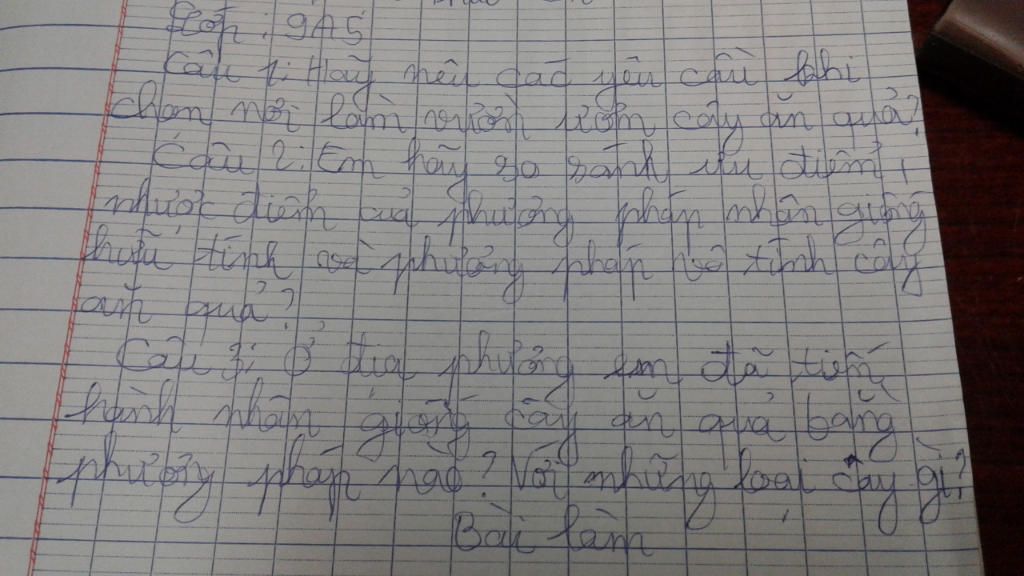 Lớp: 9A5
Câu 1: Hãy nêu các yêu cầu khi
chọn nơi làm vườn ươm cây ăn quả?
Câu 2: Em hãy so sánh ưu điểm,
nhược điểm của phương pháp nhân giống
hữu tính và phương pháp vô tính cây
ăn quả?
Câu 3: Ở địa phương em đã tiến
hành nhân giống cây ăn quả bằng
phương pháp nào? Với những loại cây gì?
Bài làm